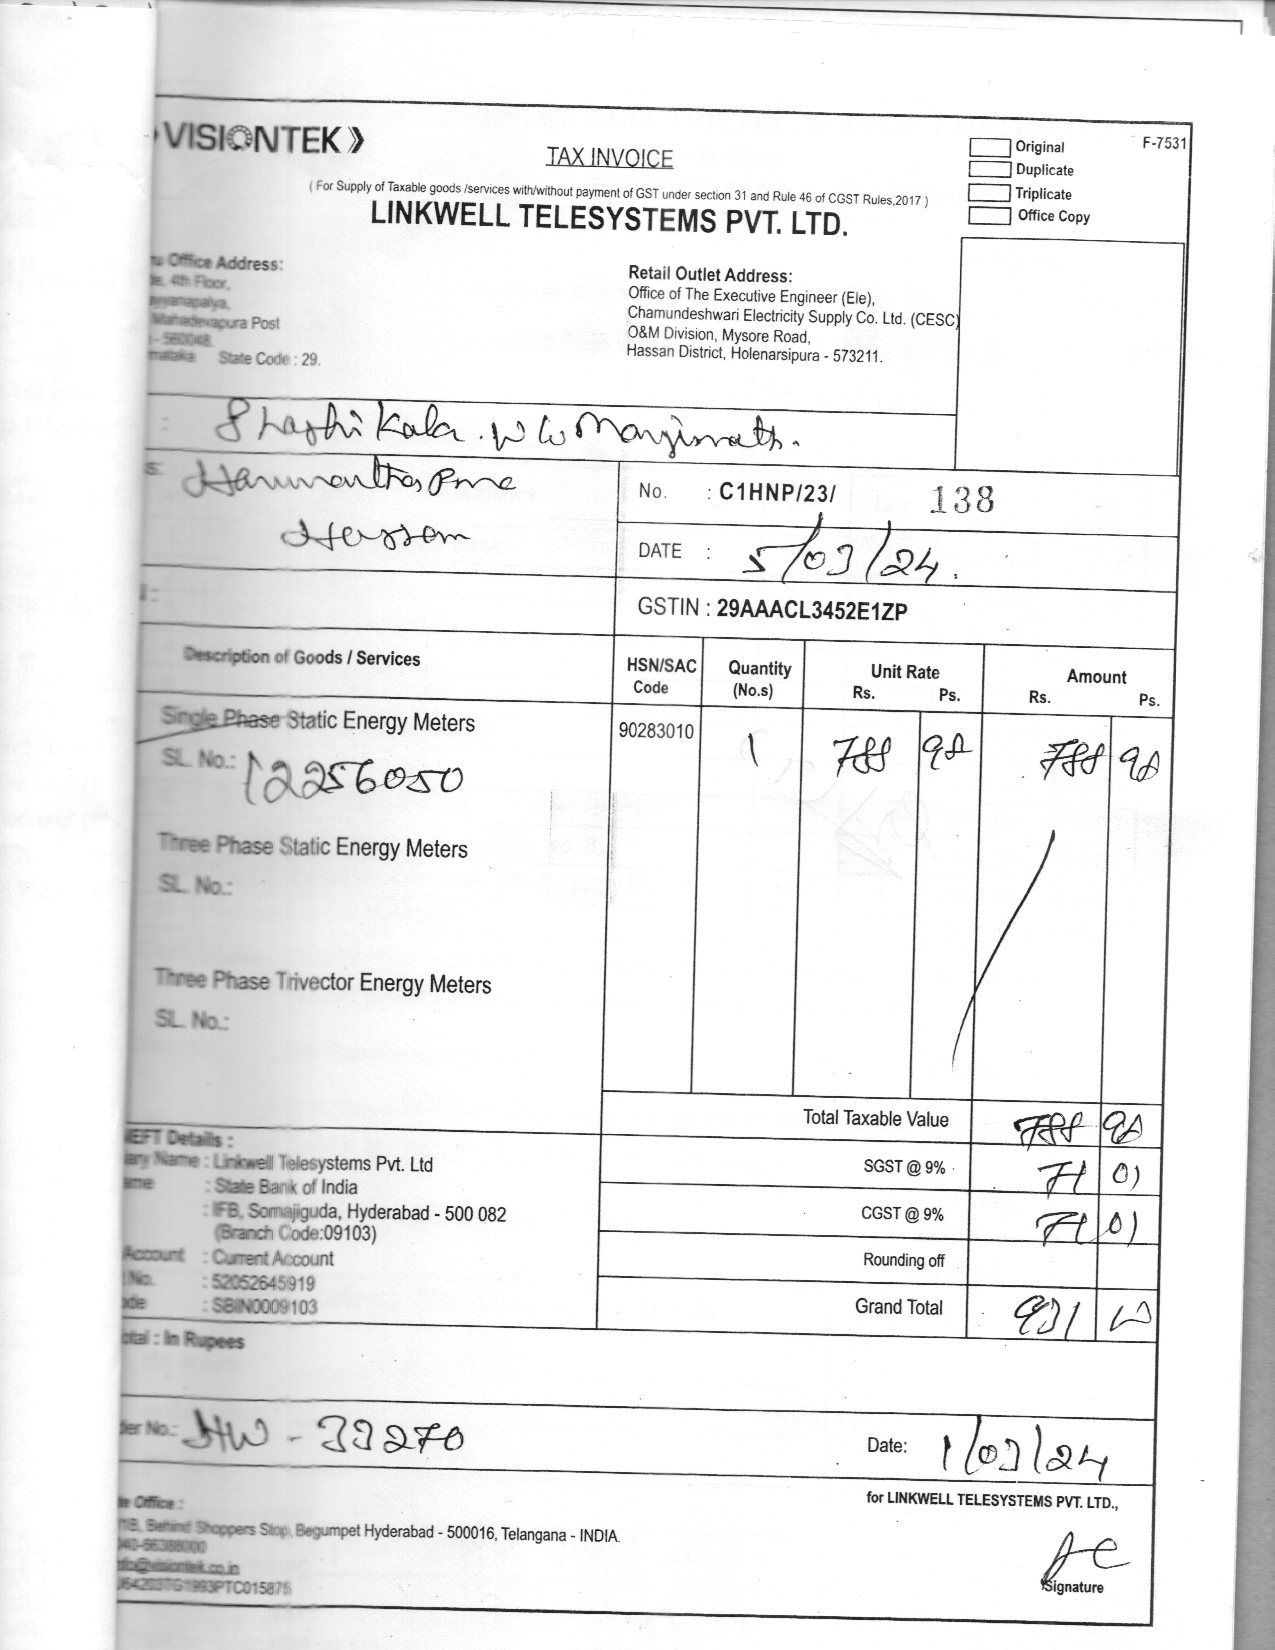 VISIONTEK
TAX INVOICE
Original
Duplicate
Triplicate
Office Copy
F-7531
( For Supply of Taxable goods /services with/without payment of GST under section 31 and Rule 46 of CGST Rules,2017 )
LINKWELL TELESYSTEMS PVT. LTD.
Office Address:
4th Floor,
Mahadevapura Post
- 560048.
State Code : 29.
Retail Outlet Address:
Office of The Executive Engineer (Ele),
Chamundeshwari Electricity Supply Co. Ltd. (CESC)
O&M Division, Mysore Road,
Hassan District, Holenarsipura - 573211.
Shashi Kala. W/o Manjinath.
Hassan
No. : C1HNP/23/ 138
DATE : 5/03/24.
GSTIN : 29AAACL3452E1ZP
Description of Goods / Services HSN/SAC Code Quantity (No.s) Unit Rate Rs. Ps. Amount Rs. Ps.
Single Phase Static Energy Meters 90283010 1 788 98 788 98
SL. No.: 12256050
Three Phase Static Energy Meters
SL. No.:
Three Phase Trivector Energy Meters
SL. No.:
Total Taxable Value 788 98
SGST @ 9% 71 01
CGST @ 9% 71 01
Rounding off
Grand Total 931 00
NEFT Details :
Name : Linkwell Telesystems Pvt. Ltd
: State Bank of India
: IFB, Somajiguda, Hyderabad - 500 082
(Branch Code:09103)
Account : Current Account
No. : 52052645919
: SBIN0009103
: In Rupees
No.: HW - 33270
Date: 1/03/24
for LINKWELL TELESYSTEMS PVT. LTD.,
Office :
Behind Shoppers Stop, Begumpet Hyderabad - 500016, Telangana - INDIA.
040-66388000
info@visiontek.co.in
Signature